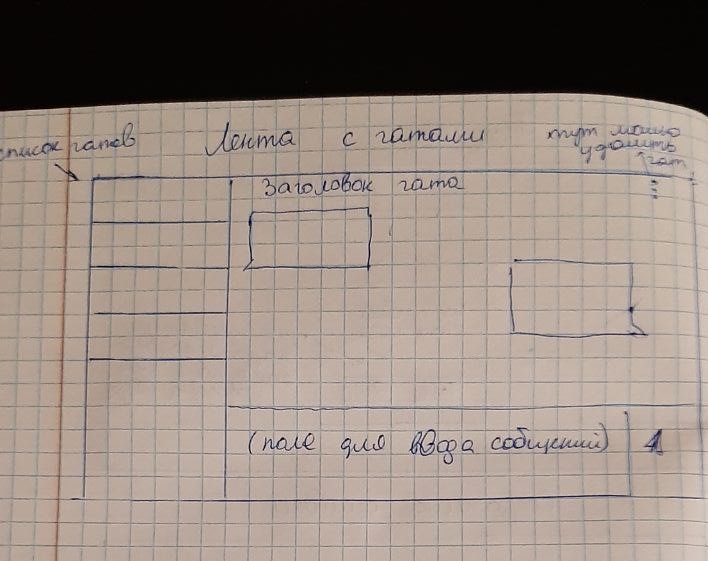 список чатов
Лента с чатами
тут можно
удалить
чат
Заголовок чата
(поле для ввода собщений)